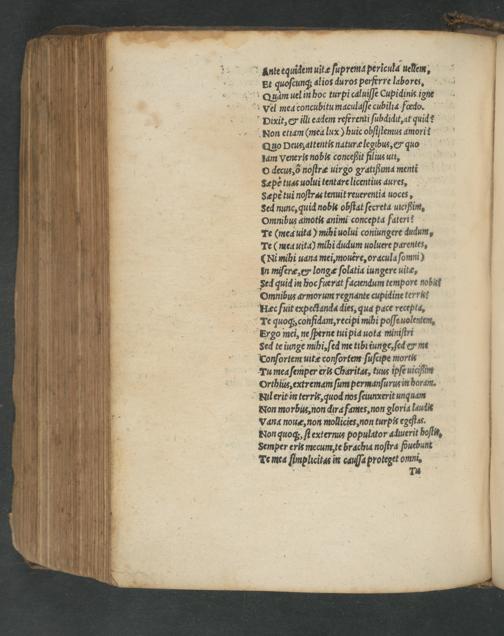 Ante equidem uitæ suprema pericula uellem,
Et quoscunq; alios duros perferre labores,
Quàm uel in hoc turpi caluisse Cupidinis igne
Vel mea concubitu maculasse cubilia fœdo.
Dixit, & illi eadem referenti subdidit, at quid?
Non etiam (mea lux) huic obstitemus amori?
Quo Deus, attentis naturæ legibus, & quo
Iam Veneris nobis concessit filius uti,
O decus, ô nostræ uirgo gratissima menti
Sæpè tuas uolui tentare licentius aures,
Sæpè tui nostras tenuit reuerentia uoces,
Sed nunc, quid nobis obstat secreta uicissim,
Omnibus amotis animi concepta fateri?
Te (mea uita) mihi uolui coniungere dudum,
Te (mea uita) mihi dudum uoluere parentes,
(Ni mihi uana mei, mouêre, oracula somni)
In miseræ, & longæ solatia iungere uitæ,
Sed quid in hoc fuerat faciendum tempore nobis?
Omnibus armorum regnante cupidine terris?
Hæc fuit expectanda dies, qua pace recepta,
Te quoq;, confidam, recipi mihi posse uolentem,
Ergo mei, ne sperne tui pia uota ministri
Sed te iunge mihi, sed me tibi iunge, sed & me
Consortem uitæ consortem suscipe mortis
Tu mea semper eris Charitas, tuus ipse uicissim
Orthius, extremam sum permansurus in horam.
Nil erit in terris, quod nos seiunxerit unquam
Non morbus, non dira fames, non gloria laudis
Vana nouæ, non mollicies, non turpis egestas.
Non quoq;, si externus populator aduerit hostis,
Semper eris mecum, te brachia nostra fouebunt
Te mea simplicitas in caussa proteget omni,
Tu